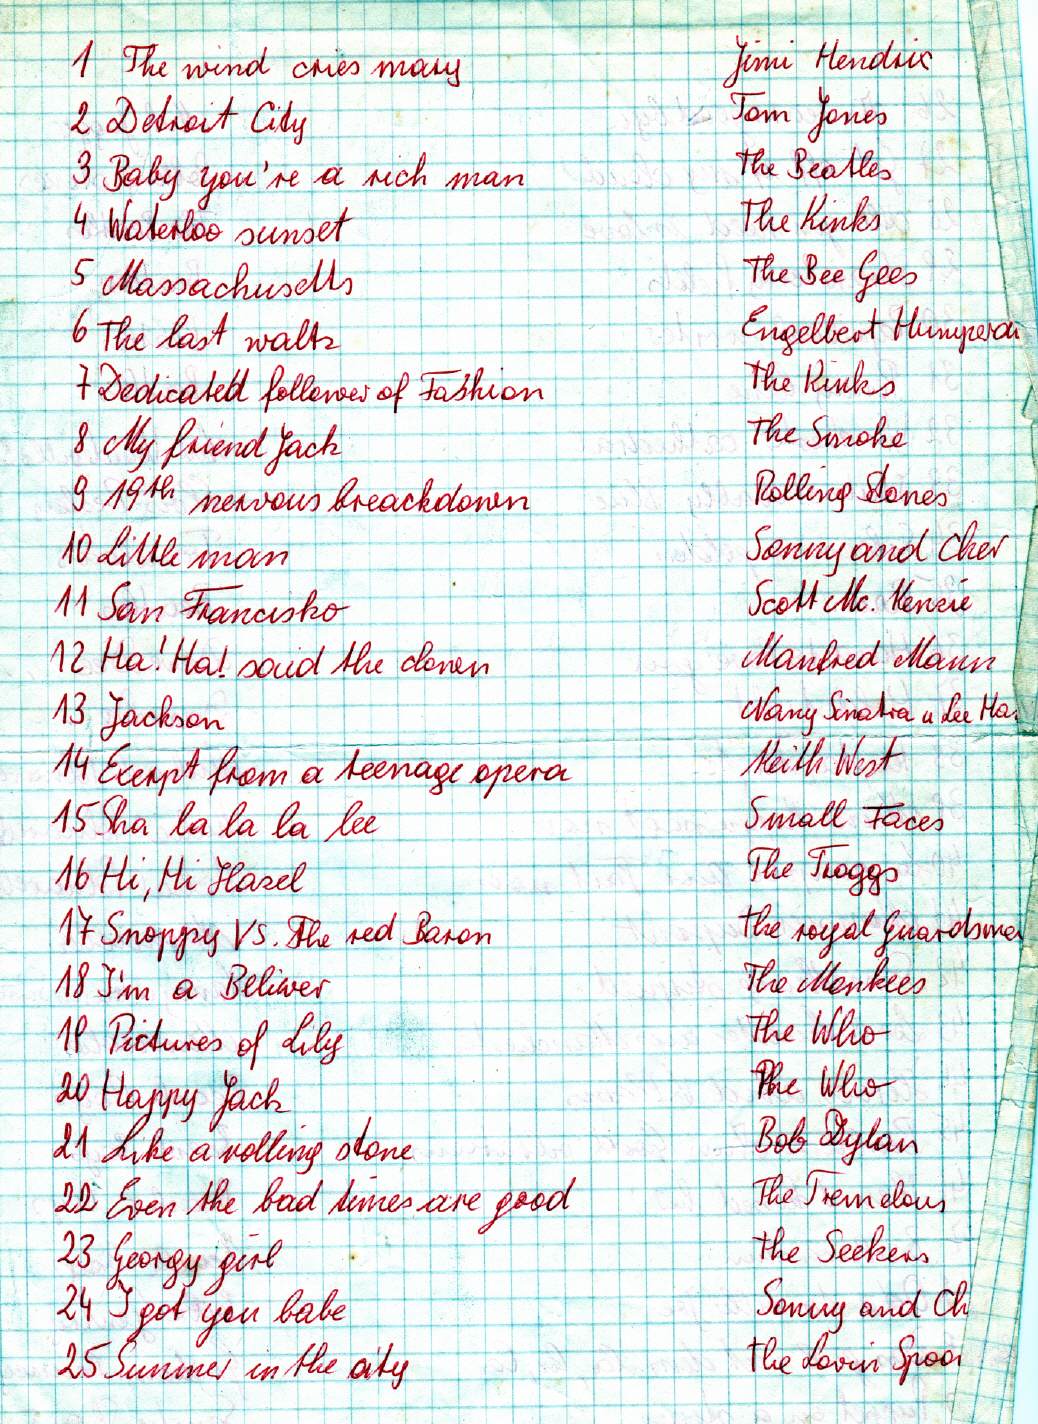 1 The wind cries mary Jimi Hendrix
2 Detroit City Tom Jones
3 Baby you're a rich man The Beatles
4 Waterloo sunset The Kinks
5 Massachusetts The Bee Gees
6 The last waltz Engelbert Humperdi
7 Dedicated follower of Fashion The Kinks
8 My friend Jack The Smoke
9 19th nervous breackdown Rolling Stones
10 Little man Sonny and Cher
11 San Francisko Scott Mc. Kenzie
12 Ha! Ha! said the clown Manfred Mann
13 Jackson Nany Sinatra u Lee Ha
14 Exerpt from a teenage opera Keith West
15 Sha la la la lee Small Faces
16 Hi, Hi Hazel The Troggs
17 Snoppy VS. The red Baron the royal Guardsmen
18 I'm a Beliver The Monkees
19 Pictures of Lily The Who
20 Happy Jack The Who
21 Like a rolling stone Bob Dylan
22 Even the bad times are good The Tremelous
23 Georgy girl the Seekers
24 I got you babe Sonny and Ch
25 Summer in the city the Lovin Spoo